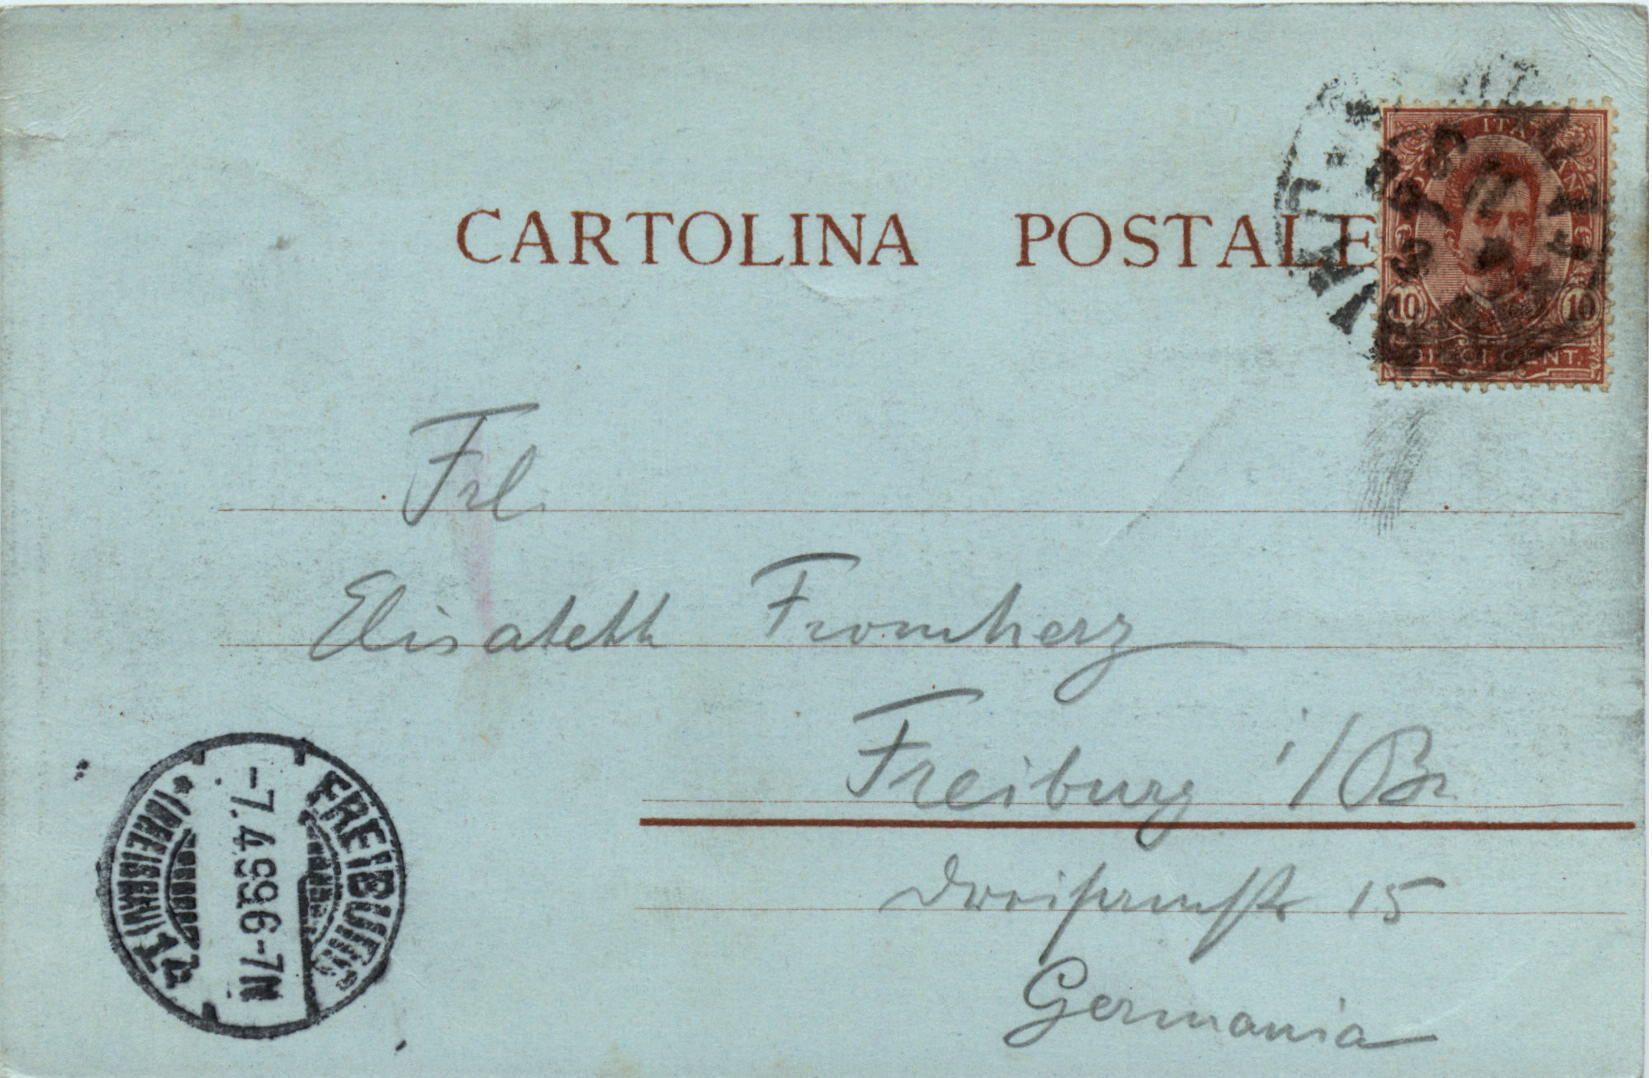 CARTOLINA POSTALE
ITA
10 10
DIECI CENT.
Frl.
Elisabeth Fromherz
Freiburg i/Br
Dreisamstr 15
Germania
FREIBURG
-7.4.99.6-7N
* (BREISGAU) 1